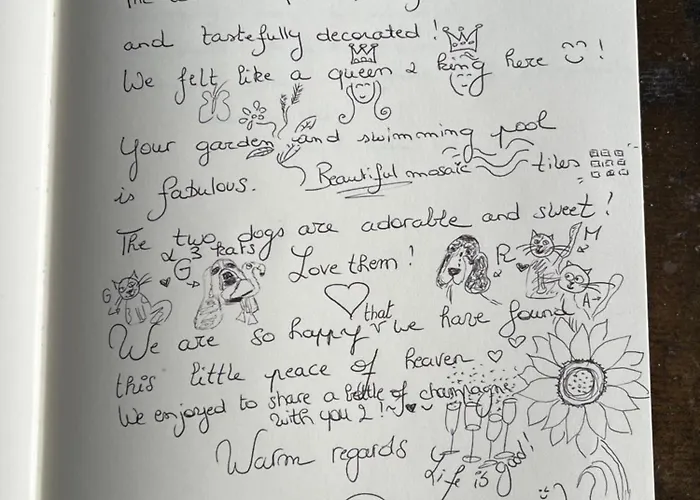 and tastefully decorated !
We felt like a queen & king here !
Your garden and swimming pool
is fabulous. Beautiful mosaïc tiles
The two dogs are adorable and sweet !
& 3 kats
G Love them ! R & M
G A
We are so happy that we have found
this little peace of heaven
We enjoyed to share a bottle of champagne
with you 2 !
Warm regards
Life is good!